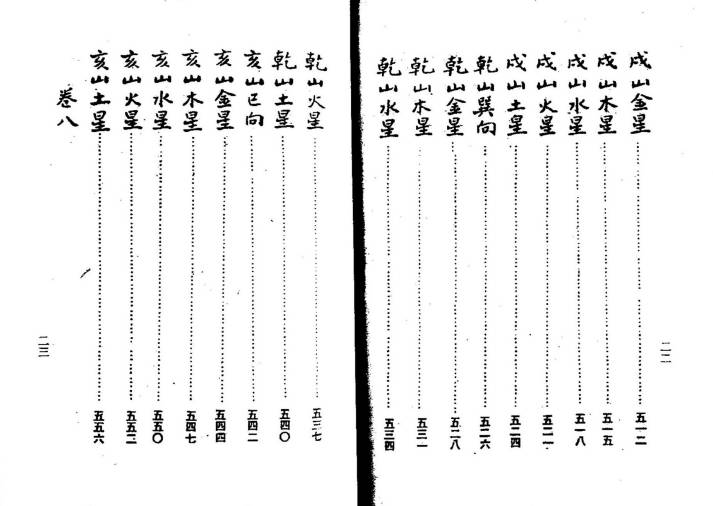 戍山金星……五一二
戍山木星……五一五
戍山水星……五一八
戍山火星……五二一
戍山土星……五二四
乾山巽向……五二六
乾山金星……五二八
乾山木星……五三一
乾山水星……五三四
二二
乾山火星……五三七
乾山土星……五四〇
亥山巳向……五四二
亥山金星……五四四
亥山木星……五四七
亥山水星……五五〇
亥山火星……五五二
亥山土星……五五六
卷八
二三